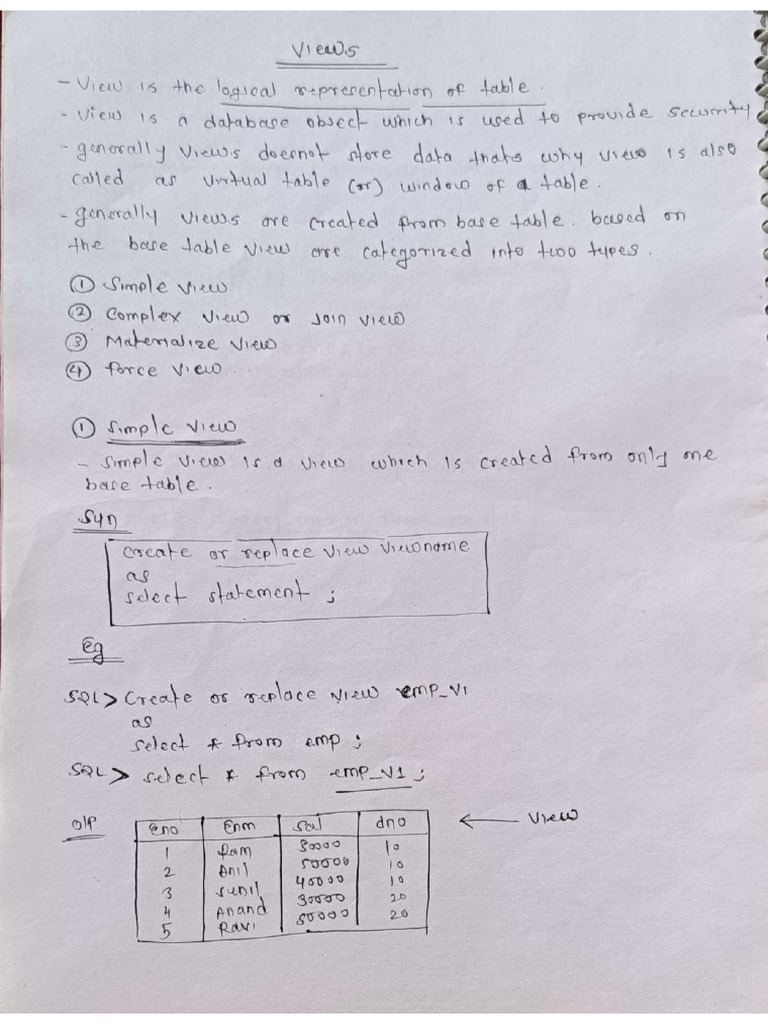 Views
- View is the logical representation of table.
- View is a database object which is used to provide security
- generally views doesnot store data thats why view is also
called as virtual table (or) window of a table.
- generally views are created from base table. based on
the base table view are categorized into two types.
① Simple view
② Complex view or Join view
③ Materialize view
④ force view.
① Simple view
- Simple view is a view which is created from only one
base table.
Syn
create or replace view viewname
as
select statement ;
Eg
SQL> Create or replace view emp_V1
as
select * from emp ;
SQL> select * from emp_V1 ;
O/P
Eno Enm Sal dno ← View
1 Ram 30000 10
2 Anil 50000 10
3 Sunil 40000 10
4 Anand 30000 20
5 Ravi 50000 20